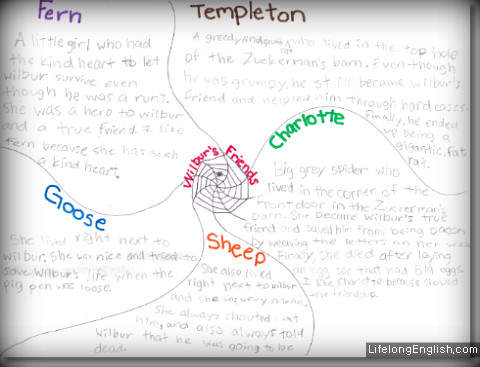 Fern
A little girl who had
the kind heart to let
wilbur survive even
though he was a runt.
She was a hero to wilbur
and a true friend. I like
fern because she has such
a kind heart.
Templeton
A greedy and rat who lived in the top hole
of the Zuckerman's barn. Even though
he was grumpy, he still became wilbur's
friend and helped him through hard cases.
Finally, he ended
up being a
gigantic, fat
rat.
Charlotte
Big grey spider who
lived in the corner of the
front door in the Zuckerman's
barn. She became Wilbur's true
friend and saved him from being bacon
by weaving the letters on her web
Finally, she died after laying
an egg sac that had 514 eggs.
I like Charlotte because showed
true friendship.
Wilbur's Friends
Goose
She lived right next to
wilbur. She was nice and tried to
save Wilbur's life when the
pig pen was loose.
Sheep
She also lived
right next to wilbur
and she was very mean.
She always shouted at
and also always told
wilbur that he was going to be
dead.
LifelongEnglish.com